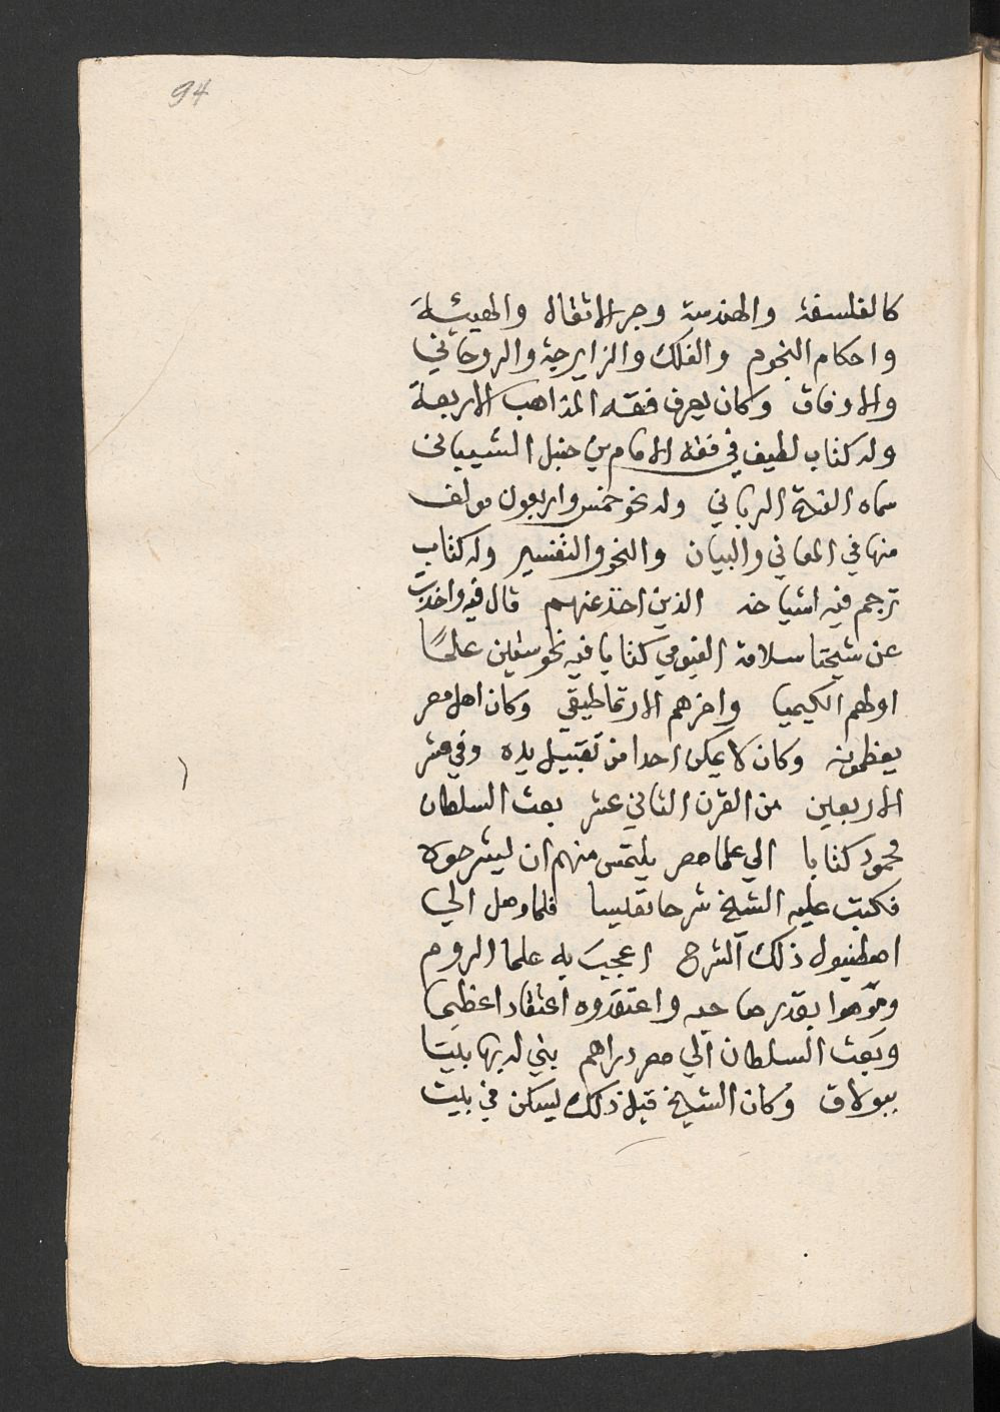 94
كالفلسفة والهندسة وجر الاثقال والهيئة
واحكام النجوم والفلك والزايرجة والروحاني
والاوفاق وكان يعرف فقه المذاهب الاربعة
وله كتاب لطيف في فقه الامام بن حنبل الشيباني
سماه الفتح الرباني وله نحو خمس واربعون مولف
منها في المعاني والبيان والنحو والتفسير وله كتاب
ترجم فيه اشياخه الذين اخذ عنهم قال فيه واخذت
عن شيخنا سلامة الفيومي كتابا فيه نحو ستين علمًا
اولهم الكيميا واخرهم الارتماطيقي وكان اهل مصر
يعظمونه وكان لا يمكن احدا من تقبيل يده وفي عشر
الاربعين من القرن الثاني عشر بعث السلطان
محمود كتابا الي علما مصر يلتمس منهم ان يشرحوه
فكتب عليه الشيخ شرحا نفيسا فلما وصل الي
اصطنبول ذلك الشرح اعجب به علما الروم
ونوّهوا بقدر صاحبه واعتقدوه اعتقادا عظيما
وبعث السلطان الي مصر دراهم بني له بها بيتا
ببولاق وكان الشيخ قبل ذلك يسكن في بيت